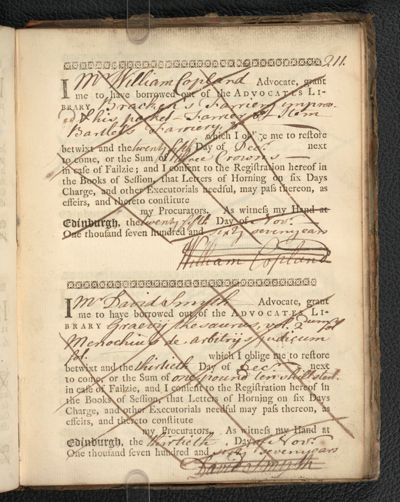 211.
I Mr William Copland Advocate, grant
me to have borrowed out of the ADVOCATES LI-
BRARY Bracken's Farriery improv-
ed & his pocket-Farrier
Bartlet's Farriery
which I oblige me to restore
betwixt and the twenty fifth Day of Decr. next
to come, or the Sum of three Crowns
in case of Failzie; and I consent to the Registration hereof in
the Books of Session, that Letters of Horning on six Days
Charge, and other Executorials needful, may pass thereon, as
effeirs, and thereto constitute
my Procurators. As witness my Hand at
Edinburgh, the twenty fifth Day of Novr.
One thousand seven hundred and sixty seven years
William Copland
I Mr David Smyth Advocate, grant
me to have borrowed out of the ADVOCATES LI-
BRARY Graevij thesaurus, vol. 2
Menochius de arbitrijs judicum
fol. which I oblige me to restore
betwixt and the thirtieth Day of Decr. next
to come, or the Sum of one pound ten shill. sterl.
in case of Failzie, and I consent to the Registration hereof in
the Books of Session, that Letters of Horning on six Days
Charge, and other Executorials needful may pass thereon, as
effeirs, and thereto constitute
my Procurators. As witness my Hand at
Edinburgh, the thirtieth Day of Novr.
One thousand seven hundred and sixty seven years
David Smyth